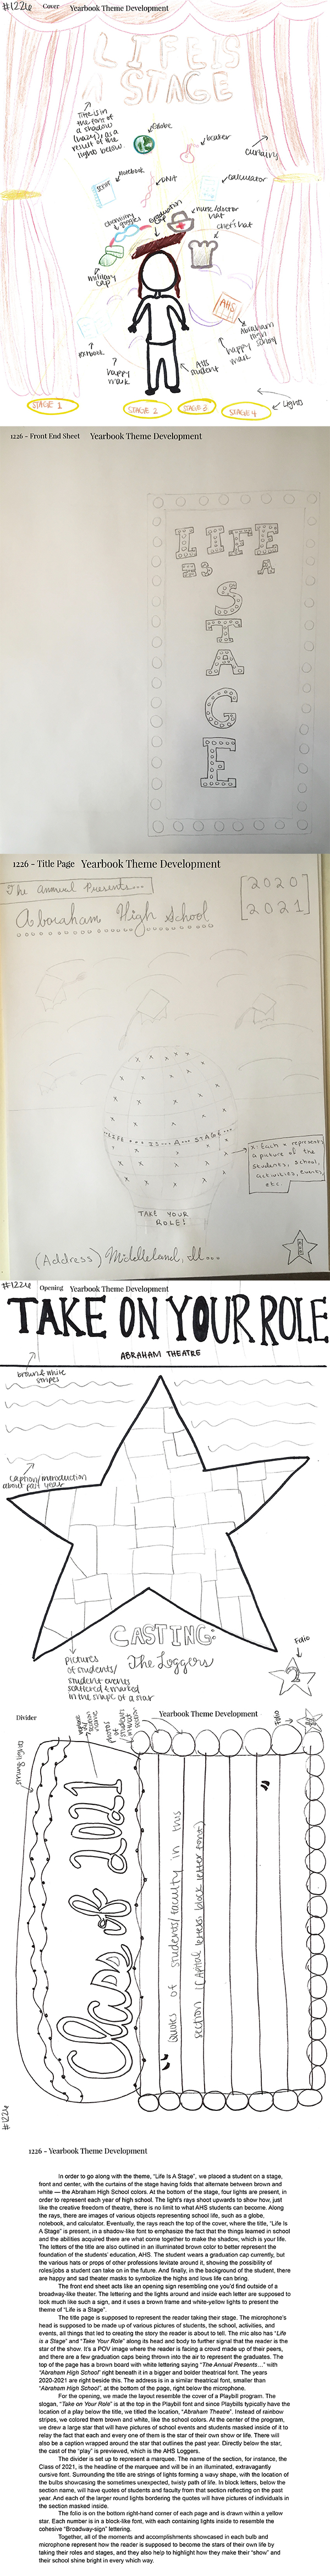 #1226 Cover Yearbook Theme Development
LIFE IS
A
STAGE
Title is in
the font of
a shadow
(hazy) as a
result of the
lights below.
Globe
beaker
curtains
notebook
DNA
calculator
chemistry
goggles
graduation
cap
nurse/doctor
hat
chef's hat
military
cap
AHS
Abraham
High School
happy
mask
textbook
happy
mask
AHS
student
Lights
STAGE 1
STAGE 2
STAGE 3
STAGE 4
1226 - Front End Sheet Yearbook Theme Development
LIFE
IS A
S
T
A
G
E
1226 - Title Page Yearbook Theme Development
The Annual Presents...
Abraham High School
[2020
2021]
LIFE ... IS ... A ... STAGE ...
x: Each x represents
a picture of the
students, school,
activities, events,
etc.
TAKE YOUR
ROLE!
(Address) Middleland, Ill...
#1226 Opening Yearbook Theme Development
TAKE ON YOUR ROLE
ABRAHAM THEATRE
brown & white
stripes
caption/introduction
about past year
CASTING:
The Loggers
pictures
of students/
student events
scattered & masked
in the shape of a star
Folio
2
Divider Yearbook Theme Development
string lights
Folio
Class of 2021
"Quotes of students/faculty in this
section (capital letters; block letter font)"
#1226
1226 - Yearbook Theme Development
In order to go along with the theme, "Life Is A Stage", we placed a student on a stage,
front and center, with the curtains of the stage having folds that alternate between brown and
white — the Abraham High School colors. At the bottom of the stage, four lights are present, in
order to represent each year of high school. The light's rays shoot upwards to show how, just
like the creative freedom of theatre, there is no limit to what AHS students can become. Along
the rays, there are images of various objects representing school life, such as a globe,
notebook, and calculator. Eventually, the rays reach the top of the cover, where the title, "Life Is
A Stage" is present, in a shadow-like font to emphasize the fact that the things learned in school
and the abilities acquired there are what come together to make the shadow, which is your life.
The letters of the title are also outlined in an illuminated brown color to better represent the
foundation of the students' education, AHS. The student wears a graduation cap currently, but
the various hats or props of other professions levitate around it, showing the possibility of
roles/jobs a student can take on in the future. And finally, in the background of the student, there
are happy and sad theater masks to symbolize the highs and lows life can bring.
The front end sheet acts like an opening sign resembling one you'd find outside of a
broadway-like theater. The lettering and the lights around and inside each letter are supposed to
look much like such a sign, and it uses a brown frame and white-yellow lights to present the
theme of "Life is a Stage".
The title page is supposed to represent the reader taking their stage. The microphone's
head is supposed to be made up of various pictures of students, the school, activities, and
events, all things that led to creating the story the reader is about to tell. The mic also has "Life
is a Stage" and "Take Your Role" along its head and body to further signal that the reader is the
star of the show. It's a POV image where the reader is facing a crowd made up of their peers,
and there are a few graduation caps being thrown into the air to represent the graduates. The
top of the page has a brown board with white lettering saying "The Annual Presents..." with
"Abraham High School" right beneath it in a bigger and bolder theatrical font. The years
2020-2021 are right beside this. The address is in a similar theatrical font, smaller than
"Abraham High School", at the bottom of the page, right below the microphone.
For the opening, we made the layout resemble the cover of a Playbill program. The
slogan, "Take on Your Role" is at the top in the Playbill font and since Playbills typically have the
location of a play below the title, we titled the location, "Abraham Theatre". Instead of rainbow
stripes, we colored them brown and white, like the school colors. At the center of the program,
we drew a large star that will have pictures of school events and students masked inside of it to
relay the fact that each and every one of them is the star of their own show or life. There will
also be a caption wrapped around the star that outlines the past year. Directly below the star,
the cast of the 'play' is previewed, which is the AHS Loggers.
The divider is set up to represent a marquee. The name of the section, for instance, the
Class of 2021, is the headline of the marquee and will be in an illuminated, extravagantly
cursive font. Surrounding the title are strings of lights forming a wavy shape, with the location of
the bulbs showcasing the sometimes unexpected, twisty path of life. In block letters, below the
section name, will have quotes of students and faculty from that section reflecting on the past
year. And each of the larger round lights bordering the quotes will have pictures of individuals in
the section masked inside.
The folio is on the bottom right-hand corner of each page and is drawn within a yellow
star. Each number is in a block-like font, with each containing lights inside to resemble the
cohesive "Broadway-sign" lettering.
Together, all of the moments and accomplishments showcased in each bulb and
microphone represent how the reader is supposed to become the stars of their own life by
taking their roles and stages, and they also help to highlight how they make their "show" and
their school shine bright in every which way.